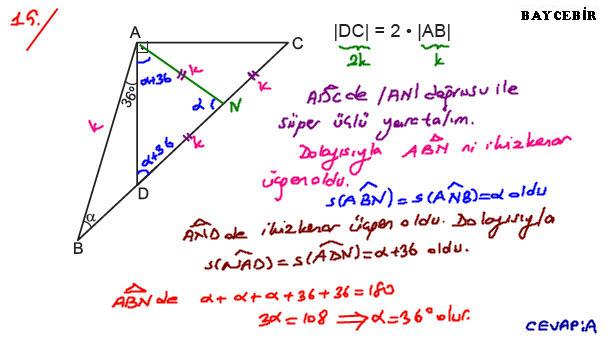 15.
BAYCEBİR
|DC| = 2 • |AB|
2k k
A
C
36°
α+36
k
k
α
N
k
k
α+36
D
α
B
ADC de |AN| doğrusu ile
süper üçlü yaratalım.
Dolayısıyla ABN ni ikizkenar
üçgen oldu.
s(ABN) = s(ANB) = α oldu
AND de ikizkenar üçgen oldu. Dolayısıyla
s(NAD) = s(ADN) = α+36 oldu.
ABN de α + α + α + 36 + 36 = 180
3α = 108 ⟹ α = 36° olur.
CEVAP: A